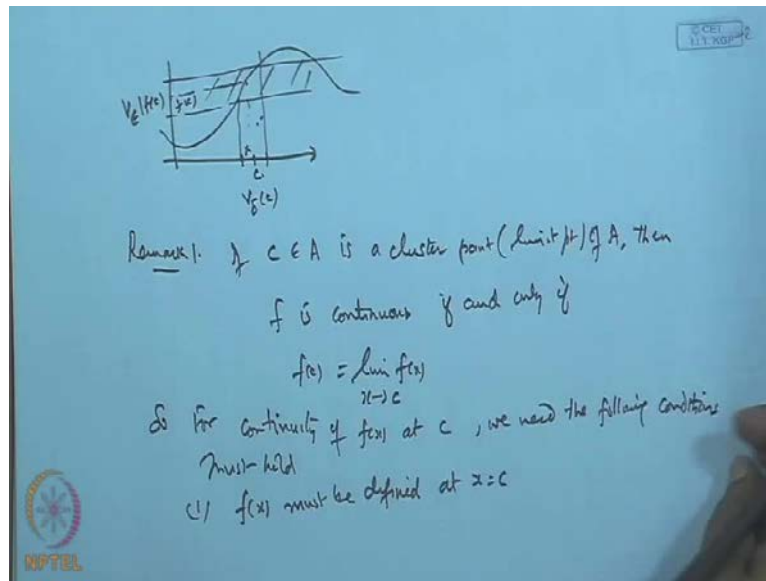 © CET
I.I.T. KGP
V_ε(f(c))
f(c)
x
c
V_δ(c)
Remark 1. If c ∈ A is a cluster point (limit pt) of A, then
f is continuous if and only if
f(c) = lim f(x)
x→c
So For continuity of f(x) at c, we need the following conditions
must hold
(1) f(x) must be defined at x=c
NPTEL